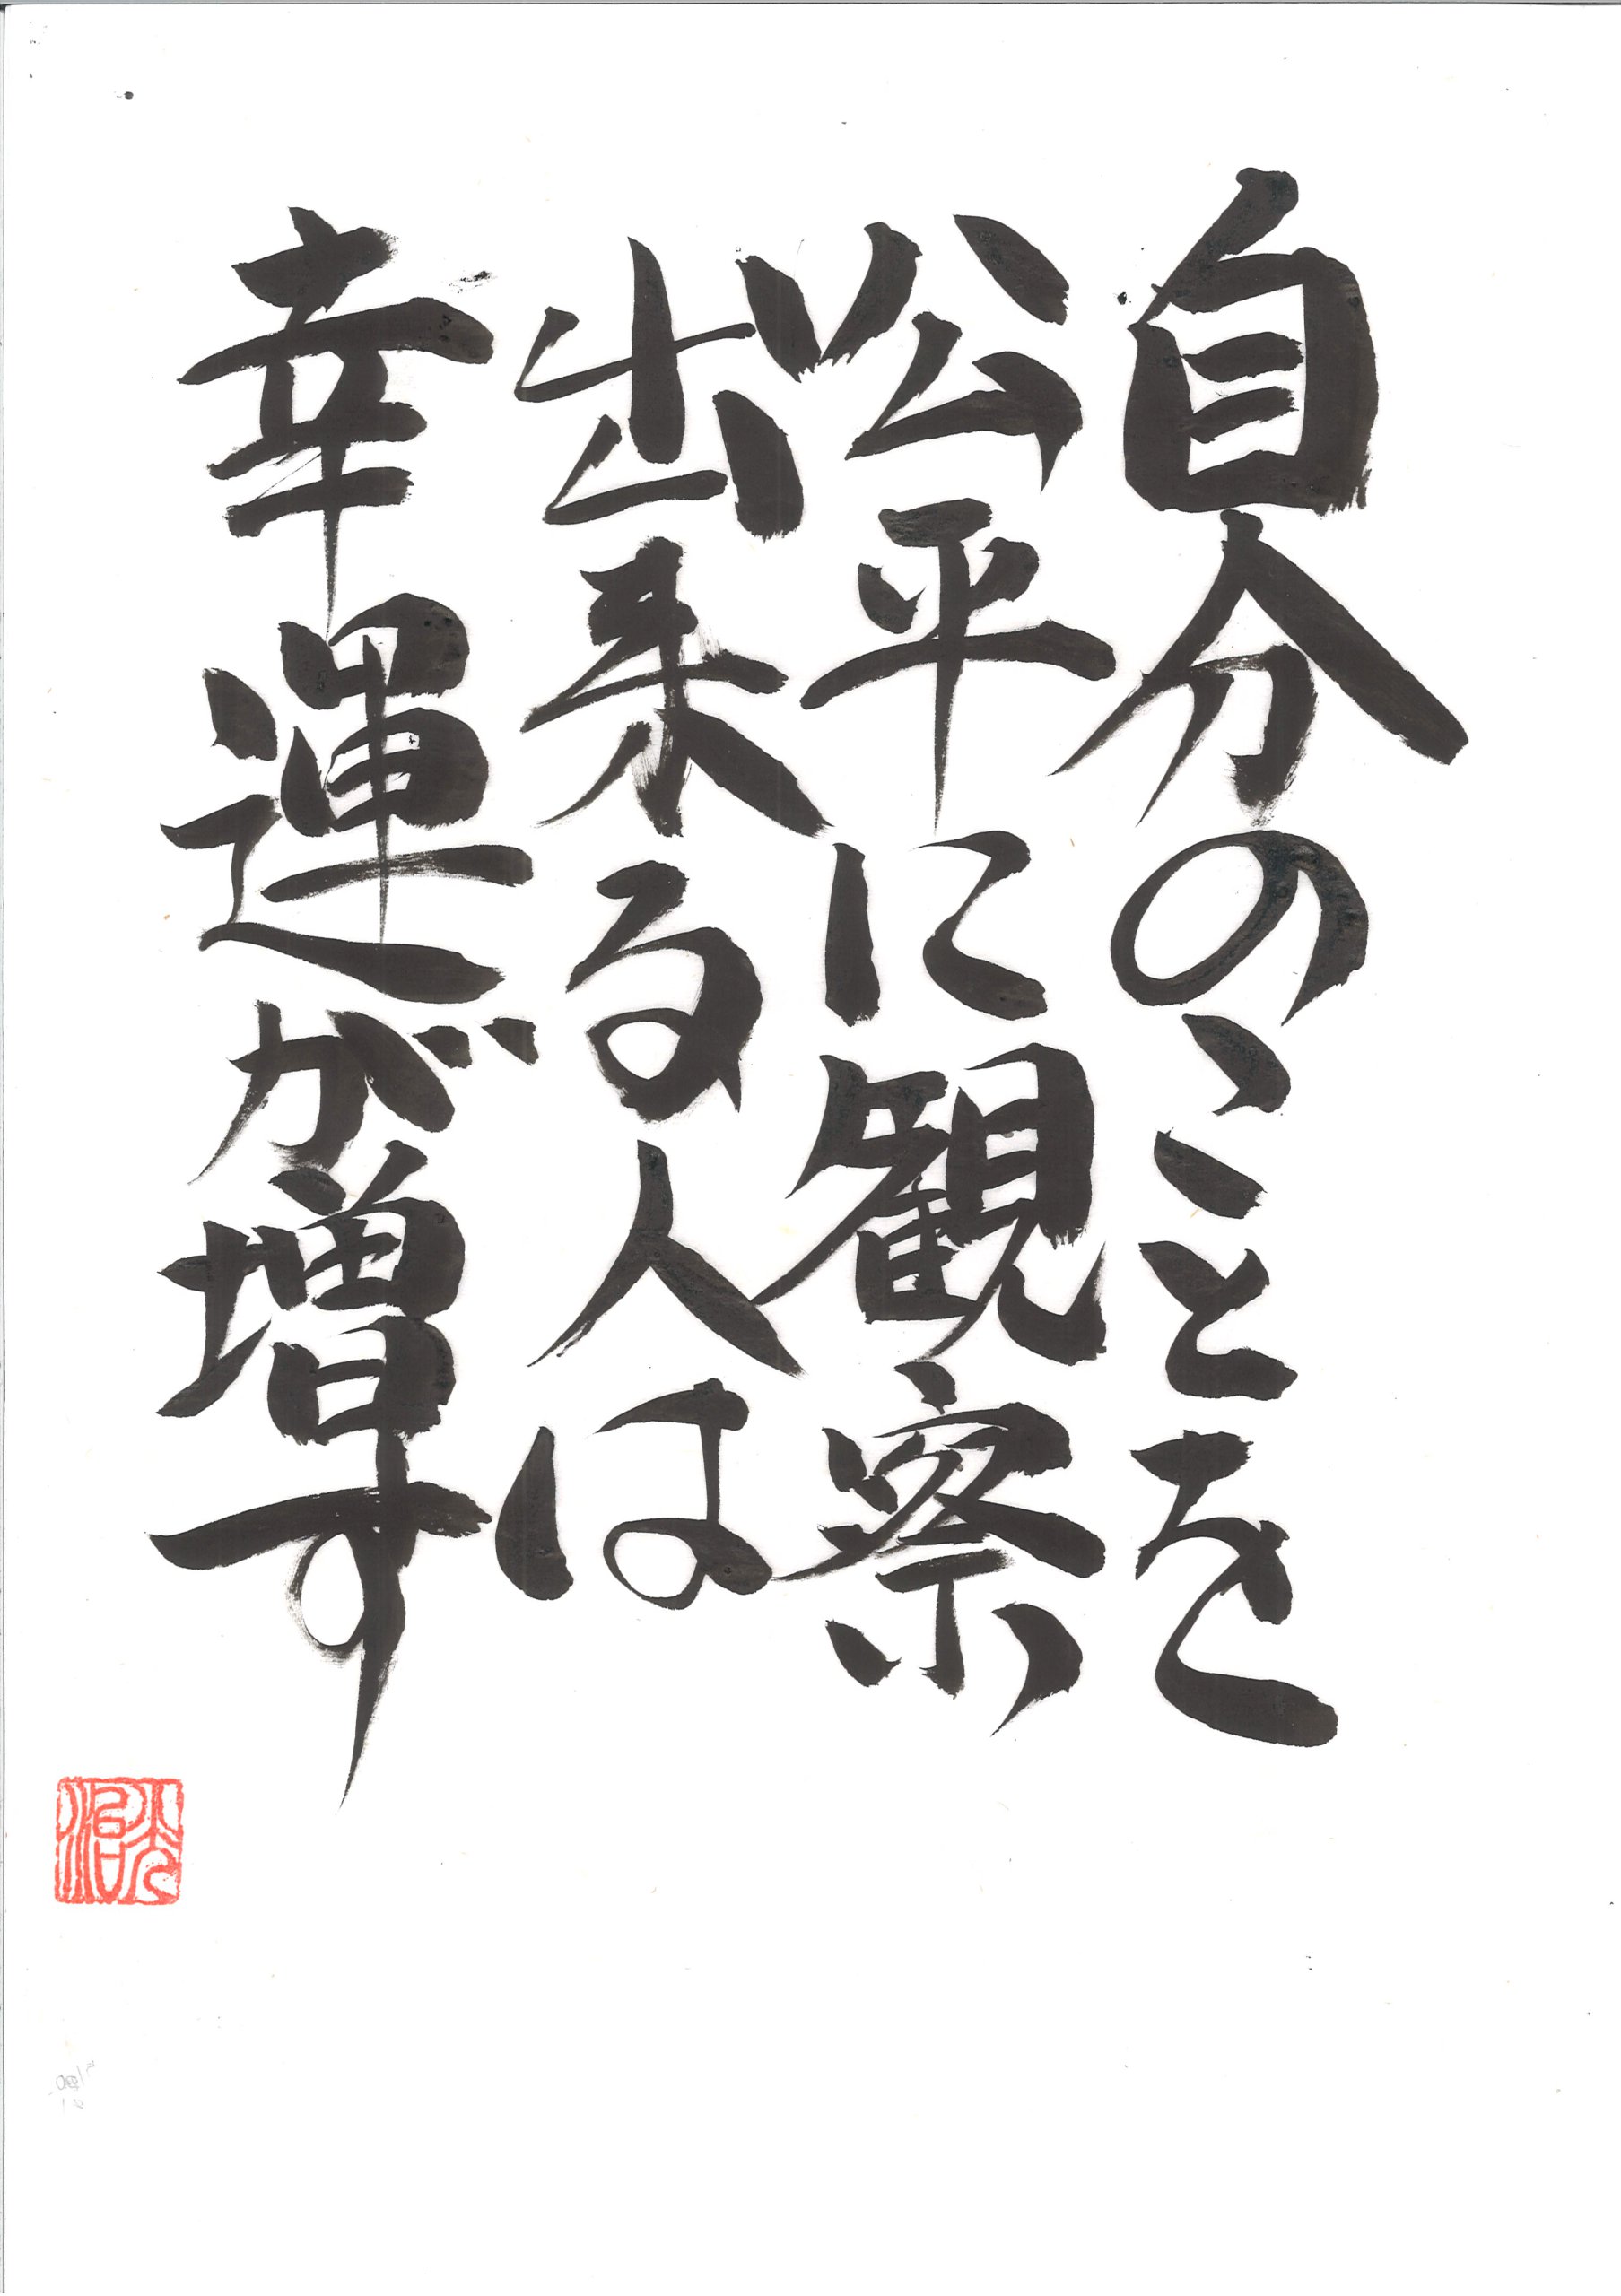 自分のことを
公平に観察
出来る人は
幸運が増す